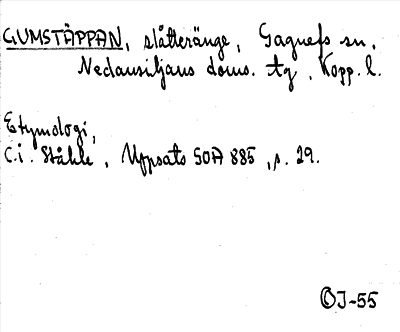 GUMSTÄPPAN, slåtteränge, Gagnefs sn,
Nedansiljans doms. tg, Kopp. l.
Etymologi,
C.I. Ståhle, Uppsats SOA 885, s. 29.
OJ-55